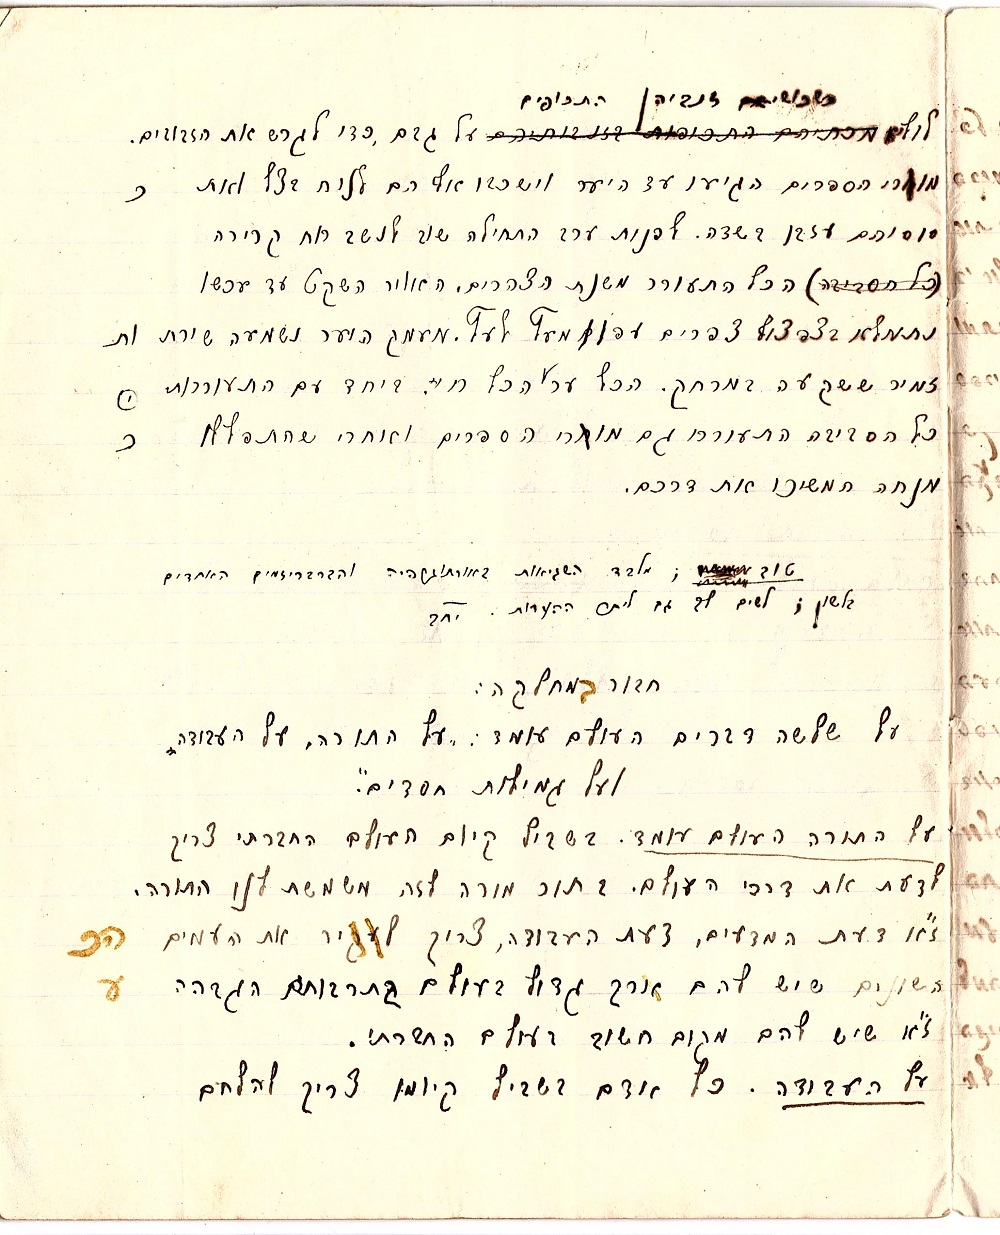 כשכושיהם זנביהן התכופים
לולא מכתיהם התכופות בזנבותיהם על גבם, כדי לגרש את הזבובים.
מוכרי הספרים הגיעו עד היער וישכבו אף הם לנוח בצל ואת כ
סוסיהם עזבו בשדה. לפנות ערב התחילה שוב לנשב רוח קרירה
(כל הסביבה) הכל התעורר משנת הצהרים. האויר השקט עד עכשו
נתמלא בצפצוף צפרים עפו מעץ לעץ. מעמק היער נשמעה שירת ות
זמיר ששקעה במרחק. הכל ער הכל חי. ביחד עם התעוררות י
כל הסביבה התעוררו גם מוכרי הספרים ואחרי שהתפללו כ
מנחה המשיכו את דרכם.
טוב ; מלבד השגיאות באורתוגרפיה והברבריזמים האחדים
בלשון ; לשים לב גם ליתר ההערות.
חבור במחלקה:
על שלשה דברים העולם עומד: "על התורה, על העבודה,
ועל גמילות חסדים".
על התורה העולם עומד. בשביל קיום העולם החברתי צריך
לדעת את דרכי העולם. בתור מורה לזה משמשת לנו התורה.
ז"א דעת המדעים, דעת העבודה, צריך להגיר את העמים הכ
השונים שיש להם ערך גדול בעולם בתרבותם הגבהה ע
ז"א שיש להם מקום חשוב בעולם החברתי.
על העבודה. כל אדם בשביל קיומו צריך להלחם